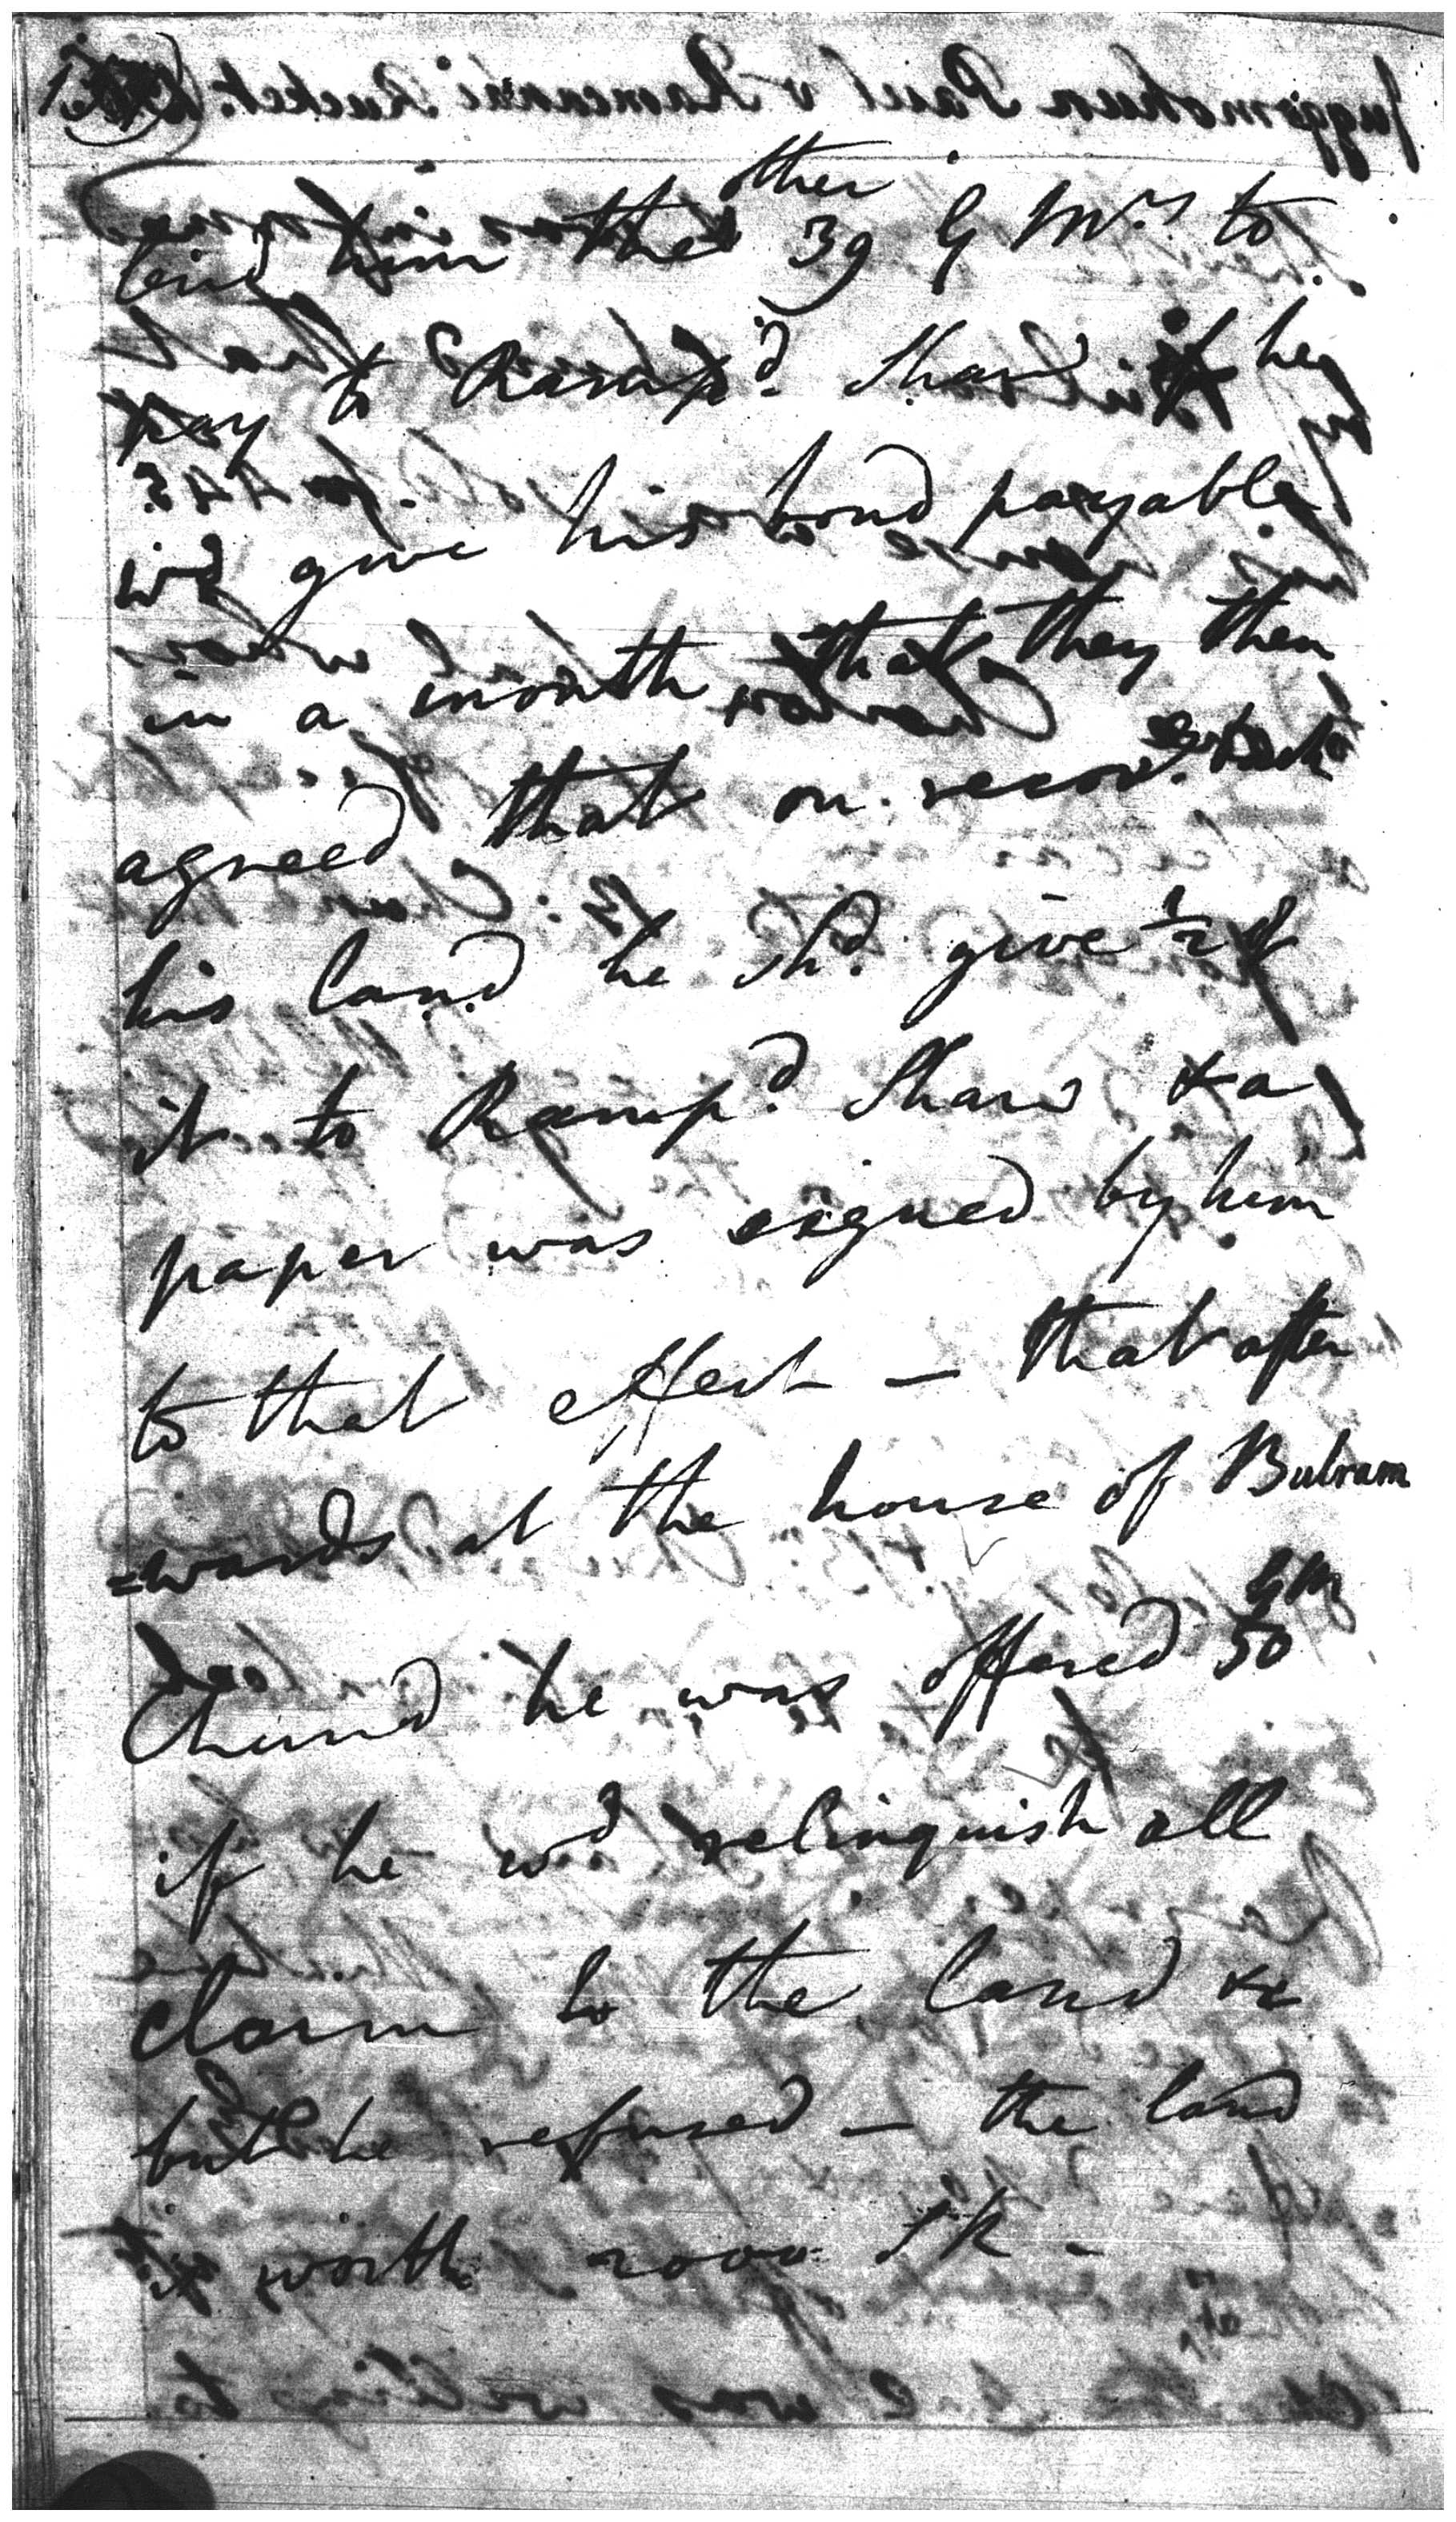 lend him the other 39 G Mrs to
pay to Ramp'd Shaw if he
wd give his bond payable
in a month that they then
agreed that on recov.g
his land he shd. give 1/2 of
it to Ramp'd Shaw & a
paper was signed by him
to that effect – that after
=wards at the house of Bulram
Chund he was offered 50 GM
if he wd relinquish all
claim to the land &c
but he refused – the land
is worth 2000 SR –